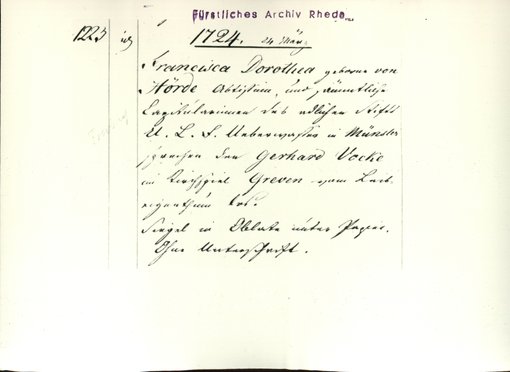 Fürstliches Archiv Rhede
1223 1724. 24 März.
Francisca Dorothea geborne von
Hörde Abtissin, und sämmtliche
Capitularinnen des adlichen Stifts
U. L. F. Ueberwasser in Münster
sprechen den Gerhard Vocke
im Kirchspiel Greven vom Leib-
eigenthum los.
Siegel in Oblate unter Papier.
Ohne Unterschrift.